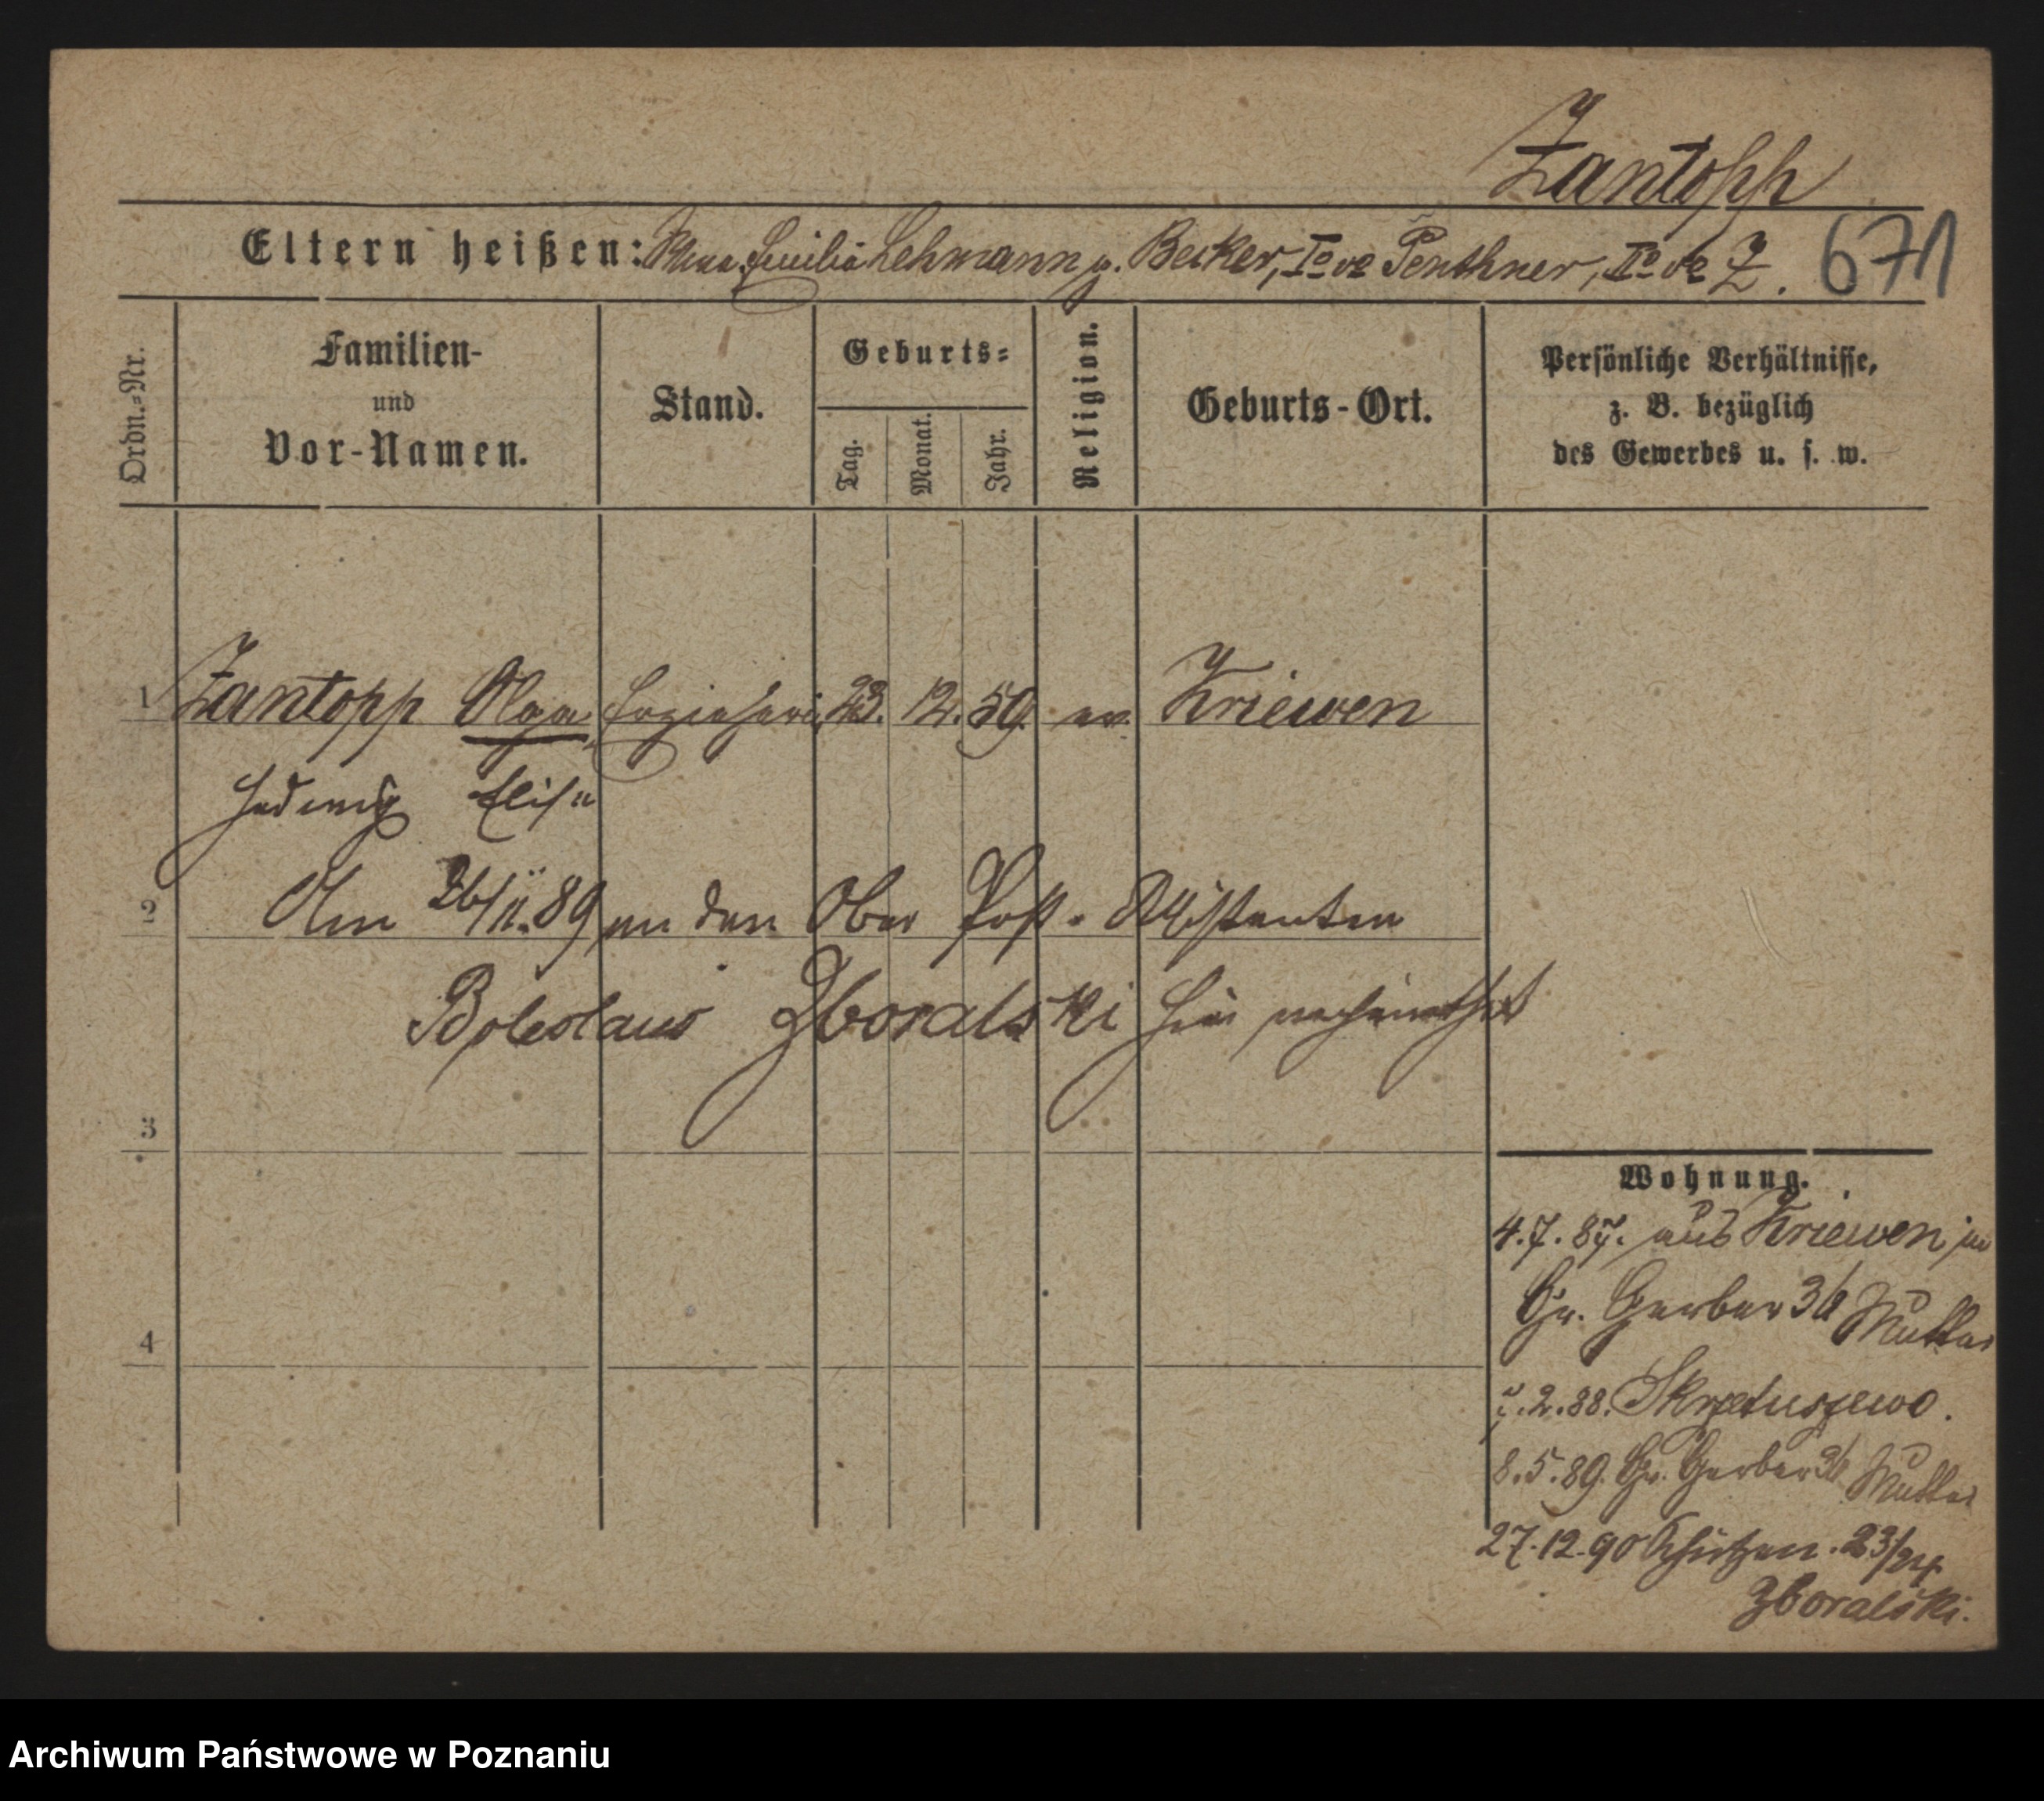 Zantopp
Eltern heißen: Emilie Lehmann g. Becker, Io vo Penthner, IIo vo Z. 671
Ordn.-Nr.
Familien-
und
Vor-Namen.
Stand.
Geburts-
Tag.
Monat.
Jahr.
Religion.
Geburts-Ort.
Persönliche Verhältnisse,
z. B. bezüglich
des Gewerbes u. s. w.
1 Zantopp Olga Erzieherin 23. 12. 59. ev. Kriewen
Hedwig Elise
2 Am 26/11.89 an den Ober Post-Assistenten
Boleslaus Zboralski hier verheirathet
3
4
Wohnung.
4.7.87. aus Kriewen in
Gr. Gerber 36 Mutter
2.88.
8.5.89. Gr. Gerber 36 Mutter
27.12.90 Schützen. 23/24.
Zboralski.
Archiwum Państwowe w Poznaniu